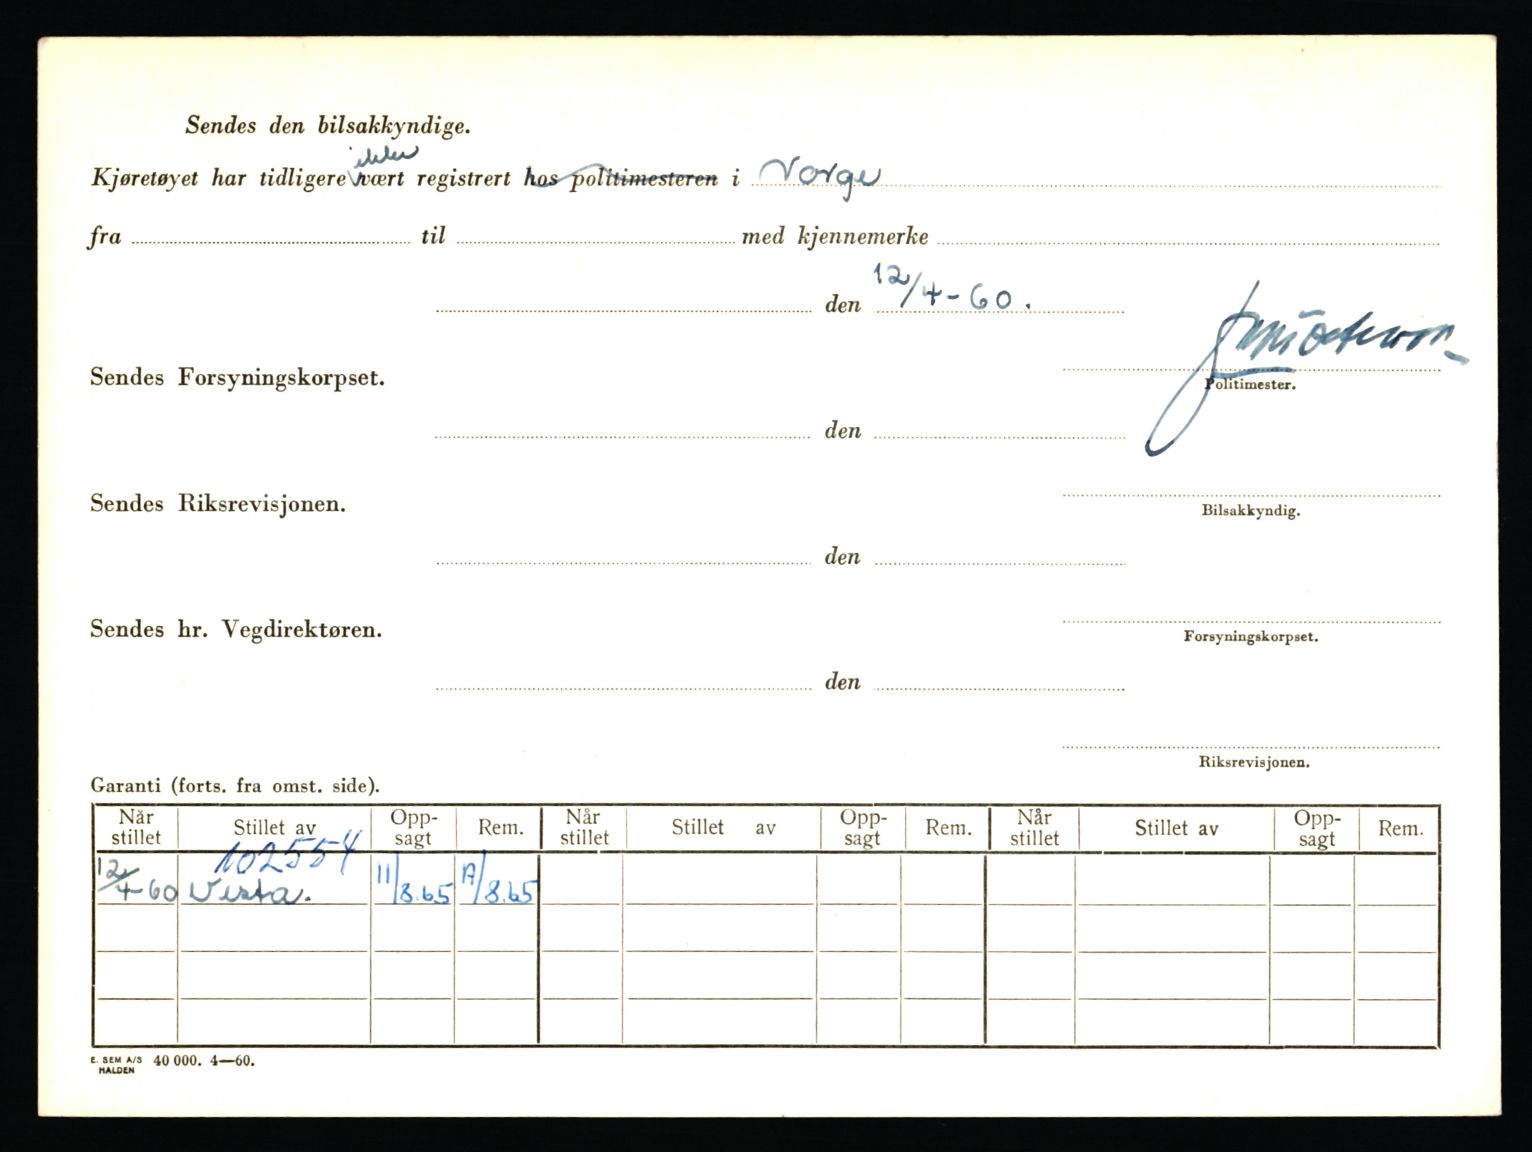 Sendes den bilsakkyndige.
ikke
Kjøretøyet har tidligere vært registrert hos politimesteren i Norge
fra til med kjennemerke
den 12/4-60.
Sendes Forsyningskorpset.
Politimester.
den
Sendes Riksrevisjonen.
Bilsakkyndig.
den
Sendes hr. Vegdirektøren.
Forsyningskorpset.
den
Riksrevisjonen.
Garanti (forts. fra omst. side).
Når stillet Stillet av Opp-sagt Rem. Når stillet Stillet av Opp-sagt Rem. Når stillet Stillet av Opp-sagt Rem.
102554
12/4-60 Vesta. 11/8.65 /8.65
E. SEM A/S HALDEN 40 000. 4—60.